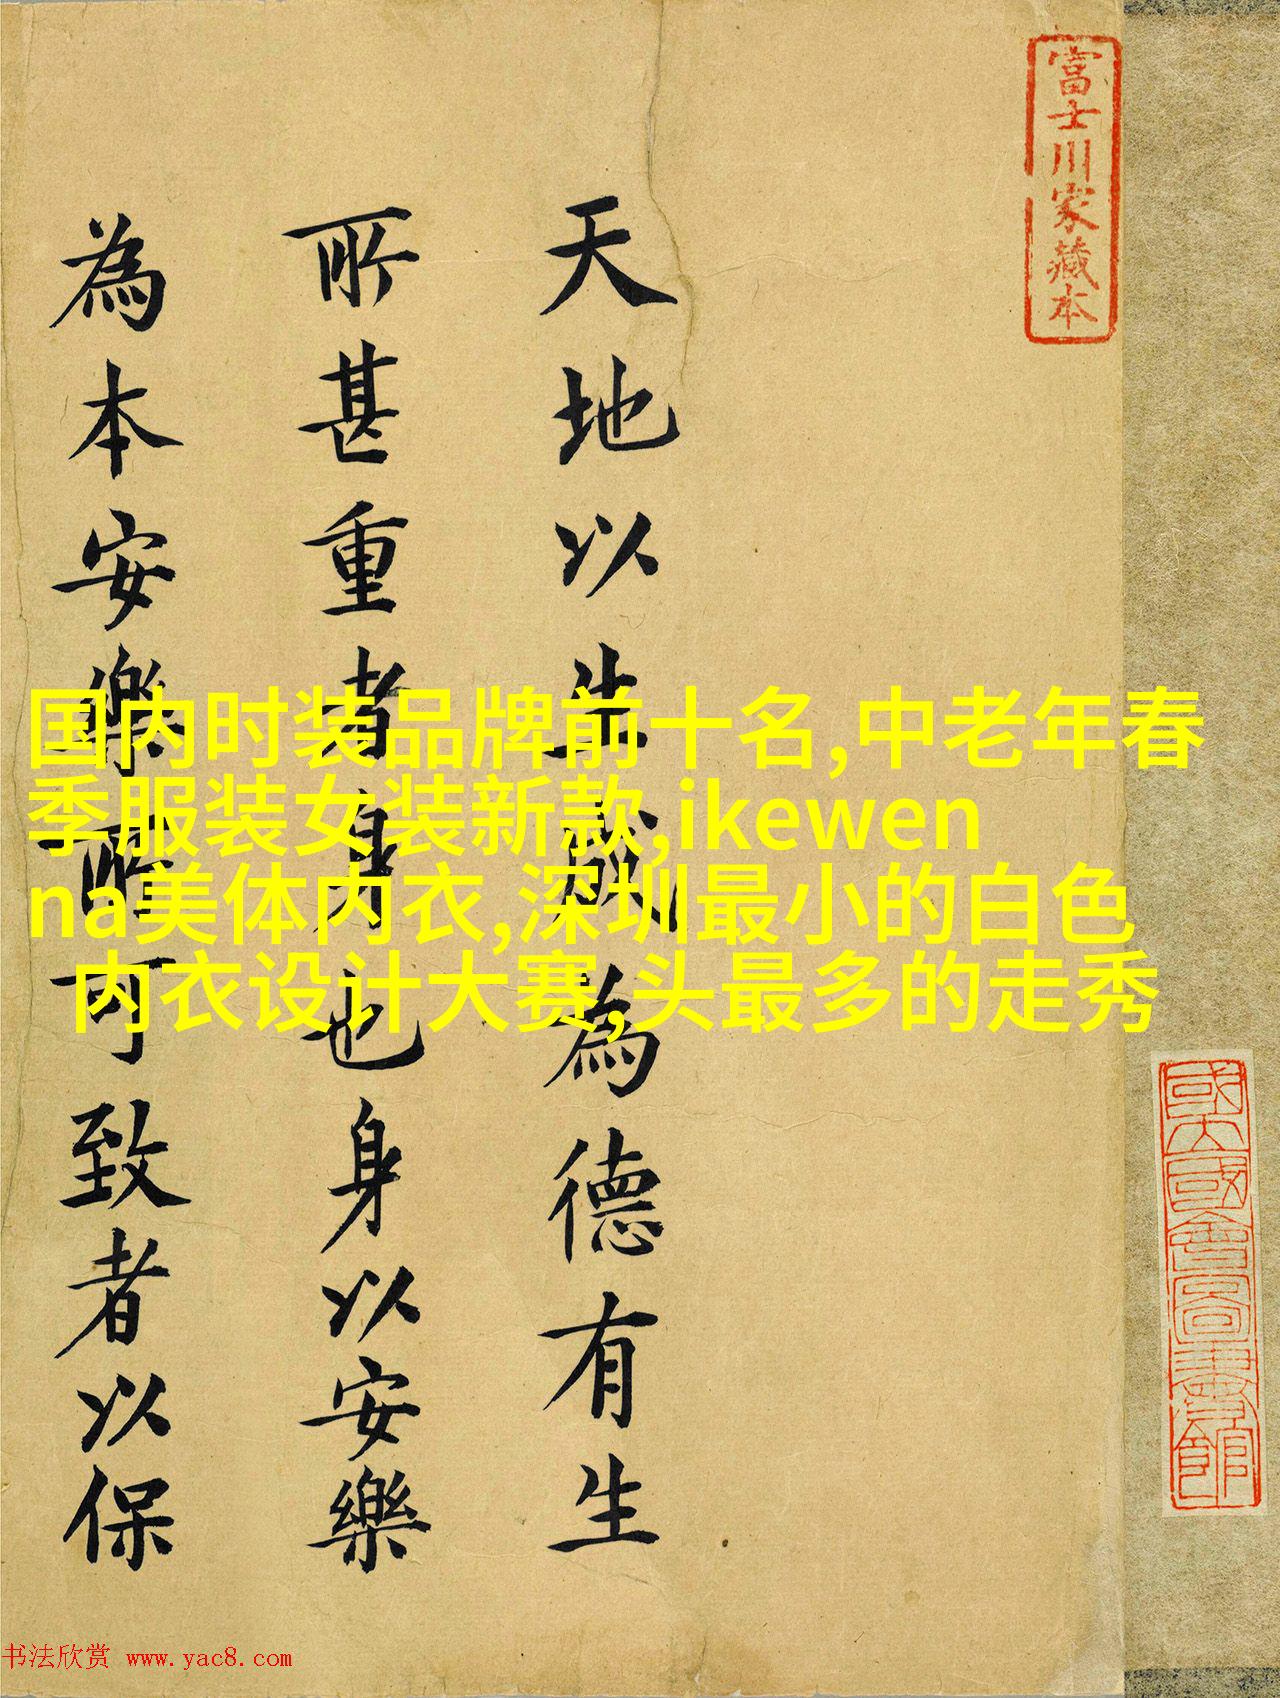 富士川家藏本
天地以生成為德有生
所甚重者身也身以安樂
為本安樂所可致者以保
国内时装品牌前十名,中老年春
季服装女装新款,ikewen
na美体内衣,深圳最小的白色
内衣设计大赛,头最多的走秀
國立國會圖書館
书法欣赏 www.yac8.com